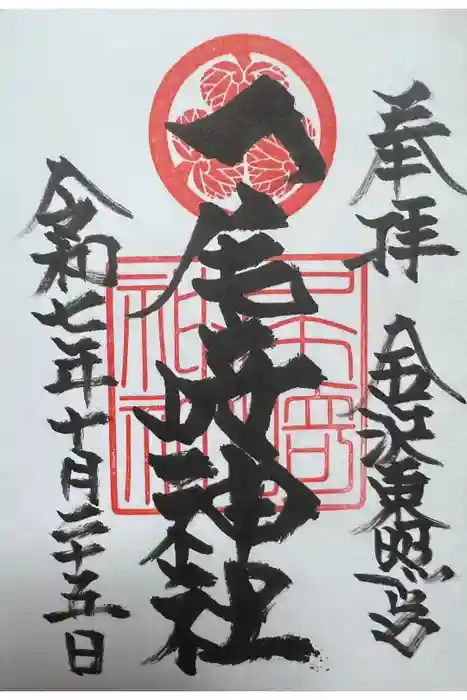 奉拝
金沢東照宮
尾崎神社
令和七年十月二十五日
尾崎神社